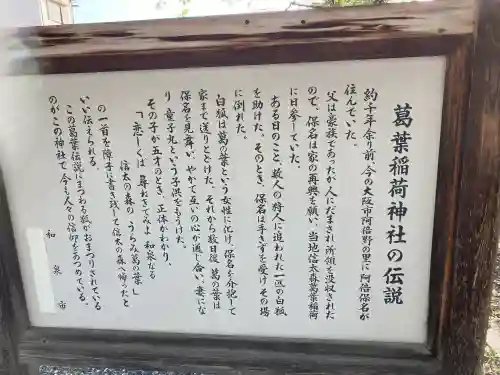 葛葉稲荷神社の伝説
約千年余り前、今の大阪市阿倍野の里に阿倍保名が
住んでいた。
父は豪族であったが、人にだまされ所領を没収された
ので、保名は家の再興を願い、当地信太森葛葉稲荷
に日参していた。
ある日のこと、数人の狩人に追われた一匹の白狐
を助けた。そのとき、保名は手きずを受けその場
に倒れた。
白狐は葛の葉という女性に化け、保名を介抱して
家まで送りとどけた。それから数日後、葛の葉は
保名を見舞い、やがて互いの心が通じ合い、妻にな
り童子丸という子供をもうけた。
その子が五才のとき、正体がわかり、
「恋しくば 尋ねきてみよ 和泉なる
信太の森の うらみ葛の葉」
の一首を障子に書き残して信太の森へ帰ったと
いい伝えられる。
この葛葉伝説にまつわる狐がおまつりされている
のがこの神社で、今も人々の信仰をあつめている。
和泉市